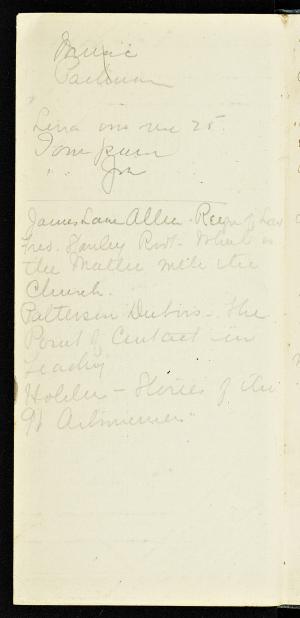 Music
Lena owes me 25
Tom
" " Jr
James Lane Allen - Reign of Law
Fred. Stanley Root - What is
the Matter with the
Church.
Patterson Dubois - The
Point of Contact in
Teaching
Holden - Stories of the